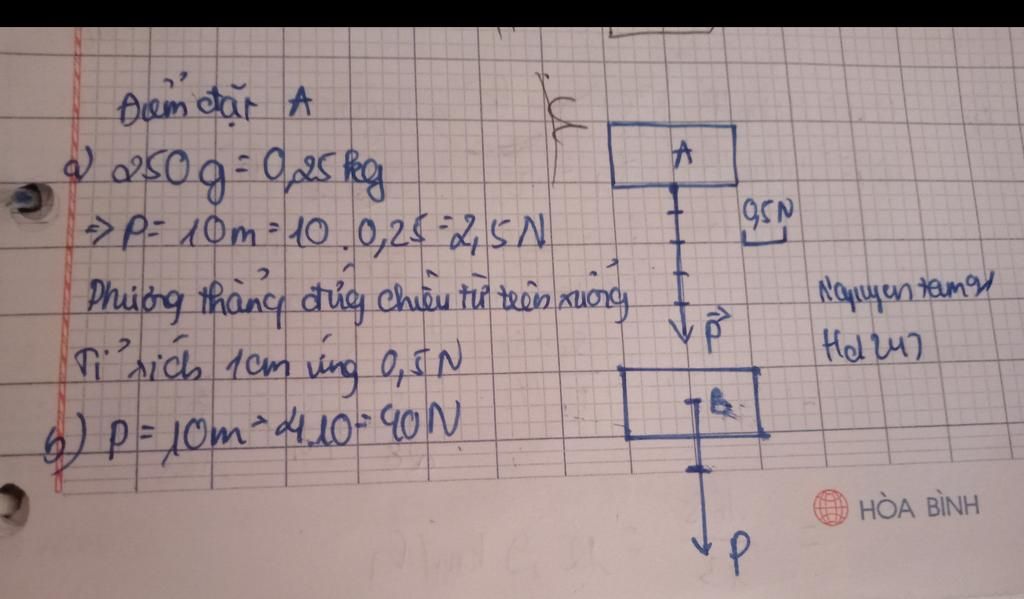 Điểm đặt A
a) 250g = 0,25 kg
=> P = 10m = 10 . 0,25 = 2,5 N
Phương thẳng đứng chiều từ trên xuống
Tỉ xích 1cm ứng 0,5N
b) P = 10m = 4.10 = 40N
A
0,5N
P
B
P
Hd247
HÒA BÌNH